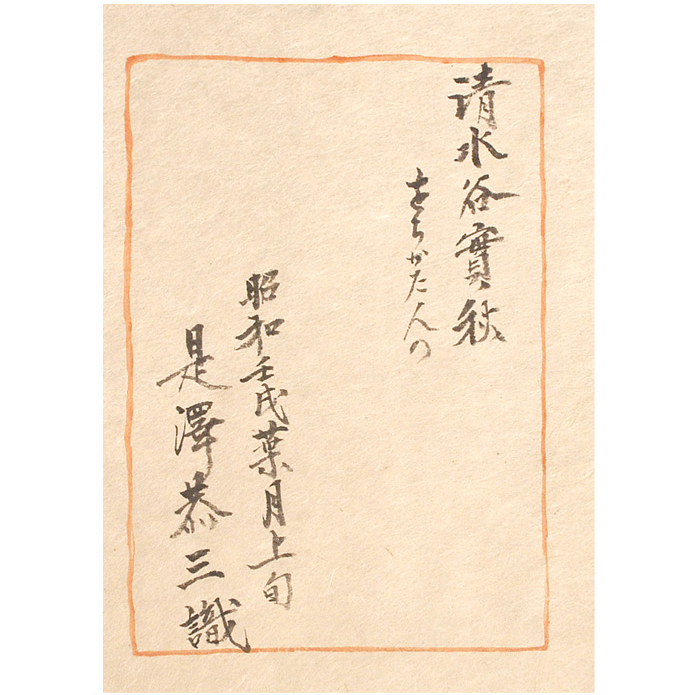 清水谷實秋
をちかた人の
昭和壬戌葉月上旬
是澤恭三識